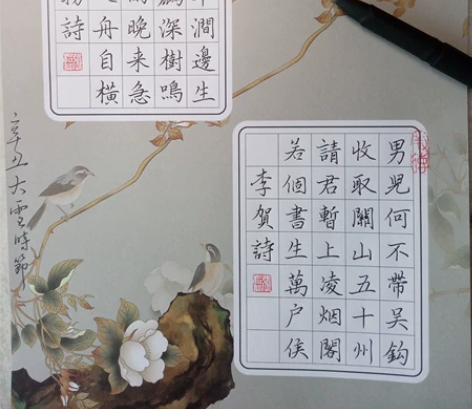 澗邊生
深樹鳴
晚来急
舟自横
物詩
男兒何不帶吴鈎
收取關山五十州
請君暫上凌烟閣
若個書生萬户侯
李賀詩
辛丑大雪時節